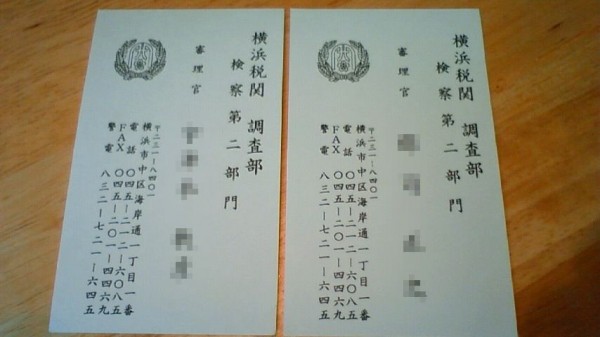 横浜税関 調査部
検察第二部門
審理官
〒二三一-八四〇一
横浜市中区海岸通一丁目一番
電話 〇四五-二一二-六〇八五
FAX 〇四五-二〇一-四四六九
警電 八三二-七二一-六四五
横浜税関 調査部
検察第二部門
審理官
〒二三一-八四〇一
横浜市中区海岸通一丁目一番
電話 〇四五-二一二-六〇八五
FAX 〇四五-二〇一-四四六九
警電 八三二-七二一-六四五